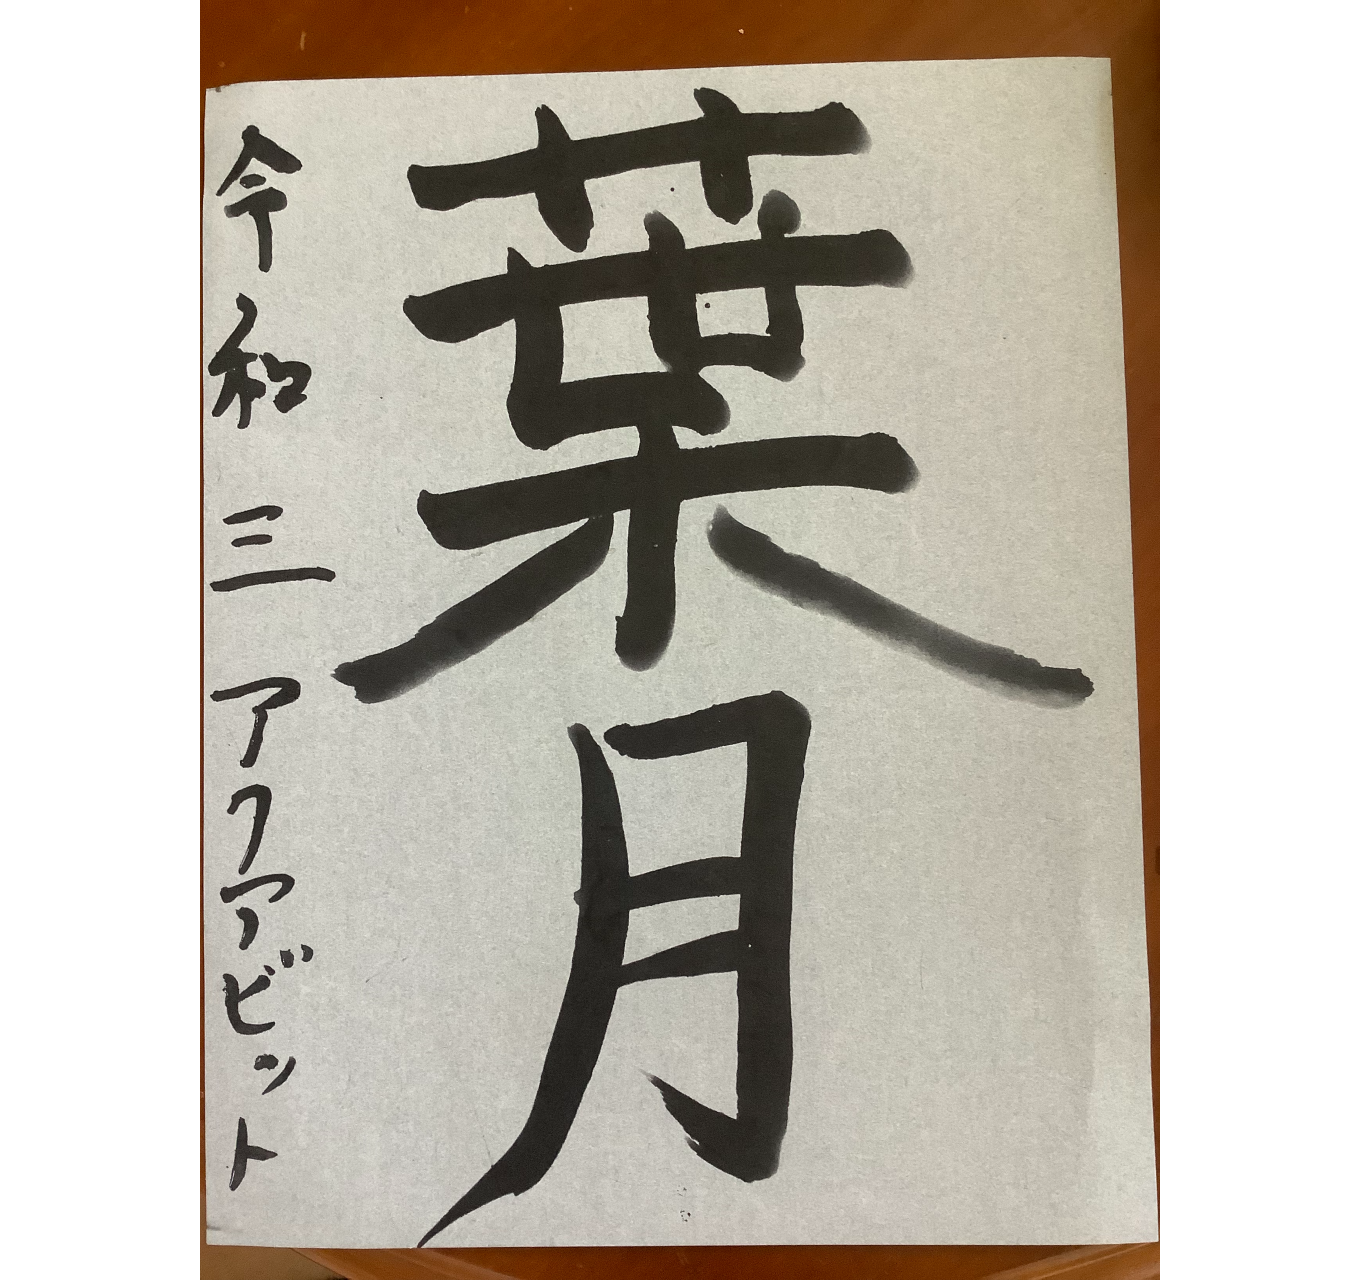 葉月
令和三 アクアビット